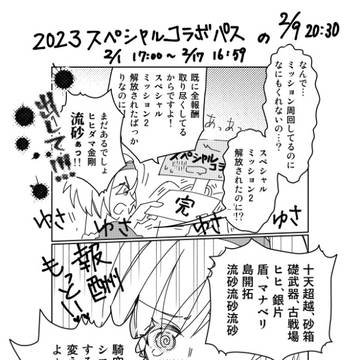 2023スペシャルコラボパス の 2/9 20:30
2/1 17:00～2/17 16:59
なんで…
ミッション周回してるのに
なにもくれないの…?
スペシャル
ミッション2
解放されたのに!?
既に全報酬
取り尽くしてる
からですよ!
スペシャル
ミッション2
解放されたばっか
りなのに!
まだあるでしょ
ヒヒダマ金剛
流砂ぁっ!!
出して!!!
スペシャルコラ
完
ゆさ
ゆさ
ゆさ
ゆさ
報酬
もっと
十天超越、砂箱
礎武器、古戦場
ヒヒ、銀片
盾、マナベリ
島開拓
流砂流砂流砂
騎空
シス
する
変え
よ